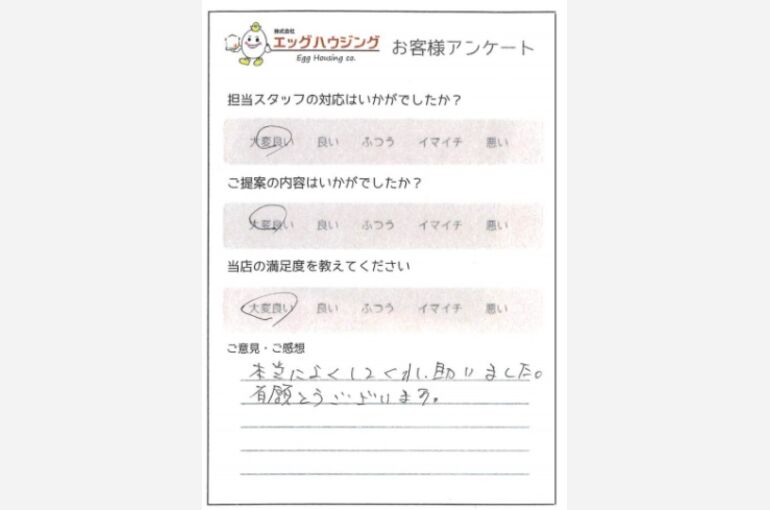 株式会社
エッグハウジング
Egg Housing co.
お客様アンケート
担当スタッフの対応はいかがでしたか？
大変良い 良い ふつう イマイチ 悪い
ご提案の内容はいかがでしたか？
大変良い 良い ふつう イマイチ 悪い
当店の満足度を教えてください
大変良い 良い ふつう イマイチ 悪い
ご意見・ご感想
本当によくしてくれ、助りました。
有願とうございます。